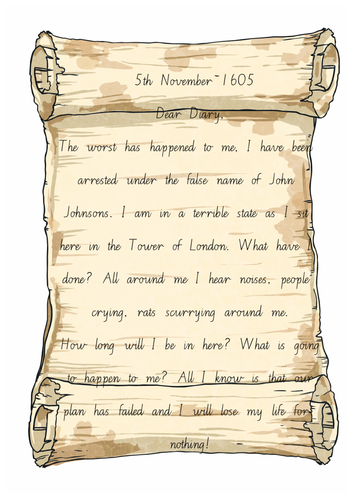 5th November-1605
Dear Diary,
The worst has happened to me. I have been
arrested under the false name of John
Johnsons. I am in a terrible state as I sit
here in the Tower of London. What have I
done? All around me I hear noises, people
crying, rats scurrying around me.
How long will I be in here? What is going
to happen to me? All I know is that our
plan has failed and I will lose my life for
nothing!